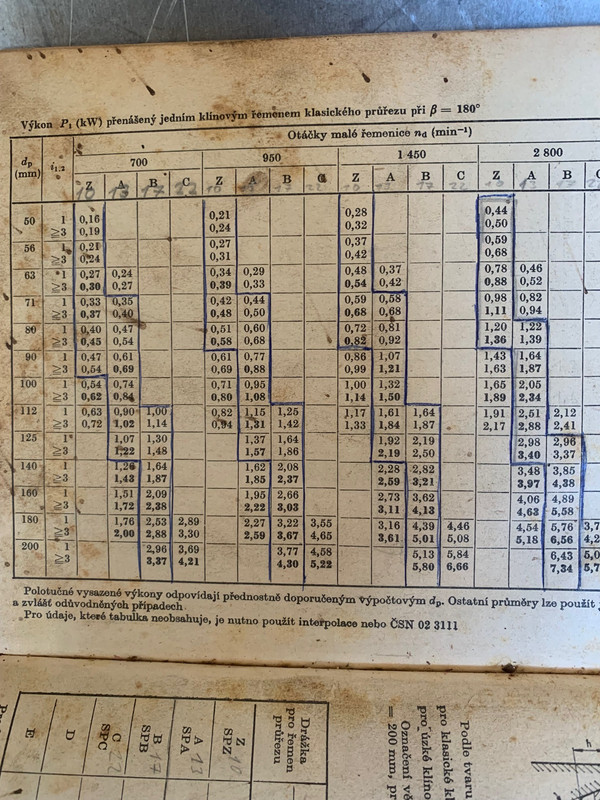 Výkon P₁ (kW) přenášený jedním klínovým řemenem klasického průřezu při β = 180°
dₚ (mm) i₁,₂ Otáčky malé řemenice n_d (min⁻¹)
700 950 1 450 2 800
Z A B C Z A B C Z A B C Z A B C
10 13 17 22 10 17 22 10 17 22 10 13 17 22
50 1 0,16 0,21 0,28 0,44
≧3 0,19 0,24 0,32 0,50
56 1 0,21 0,27 0,37 0,59
≧3 0,24 0,31 0,42 0,68
63 1 0,27 0,24 0,34 0,29 0,48 0,37 0,78 0,46
≧3 0,30 0,27 0,39 0,33 0,54 0,42 0,88 0,52
71 1 0,33 0,35 0,42 0,44 0,59 0,58 0,98 0,82
≧3 0,37 0,40 0,48 0,50 0,68 0,68 1,11 0,94
80 1 0,40 0,47 0,51 0,60 0,72 0,81 1,20 1,22
≧3 0,45 0,54 0,58 0,68 0,82 0,92 1,36 1,39
90 1 0,47 0,61 0,61 0,77 0,86 1,07 1,43 1,64
≧3 0,54 0,69 0,69 0,88 0,99 1,21 1,63 1,87
100 1 0,54 0,74 0,71 0,95 1,00 1,32 1,65 2,05
≧3 0,62 0,84 0,80 1,08 1,14 1,50 1,89 2,34
112 1 0,63 0,90 1,00 0,82 1,15 1,25 1,17 1,61 1,64 1,91 2,51 2,12
≧3 0,72 1,02 1,14 0,94 1,31 1,42 1,33 1,84 1,87 2,17 2,88 2,41
125 1 1,07 1,30 1,37 1,64 1,92 2,19 2,98 2,96
≧3 1,22 1,48 1,57 1,86 2,19 2,50 3,40 3,37
140 1 1,26 1,64 1,62 2,08 2,28 2,82 3,48 3,85
≧3 1,43 1,87 1,85 2,37 2,59 3,21 3,97 4,38
160 1 1,51 2,09 1,95 2,66 2,73 3,62 4,06 4,89
≧3 1,72 2,38 2,22 3,03 3,11 4,13 4,63 5,58
180 1 1,76 2,53 2,89 2,27 3,22 3,55 3,16 4,39 4,46 4,54 5,76
≧3 2,00 2,88 3,30 2,59 3,67 4,65 3,61 5,01 5,08 5,18 6,56
200 1 2,96 3,69 3,77 4,58 5,13 5,84 6,43
≧3 3,37 4,21 4,30 5,22 5,80 6,66 7,34
Polotučné vysazené výkony odpovídají přednostně doporučeným výpočtovým dₚ. Ostatní průměry lze použít
a zvlášť odůvodněných případech.
Pro údaje, které tabulka neobsahuje, je nutno použít interpolace nebo ČSN 02 3111
Drážka
pro řemen
průřezu
Z 10
SPZ
A 13
SPA
B 17
SPB
C 22
SPC
D
E
Podle tvaru
pro klasické k
pro úzké klíno
Označení vě
= 200 mm, pr